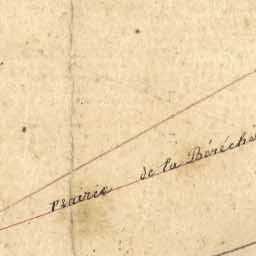 Prairie de la Béréch